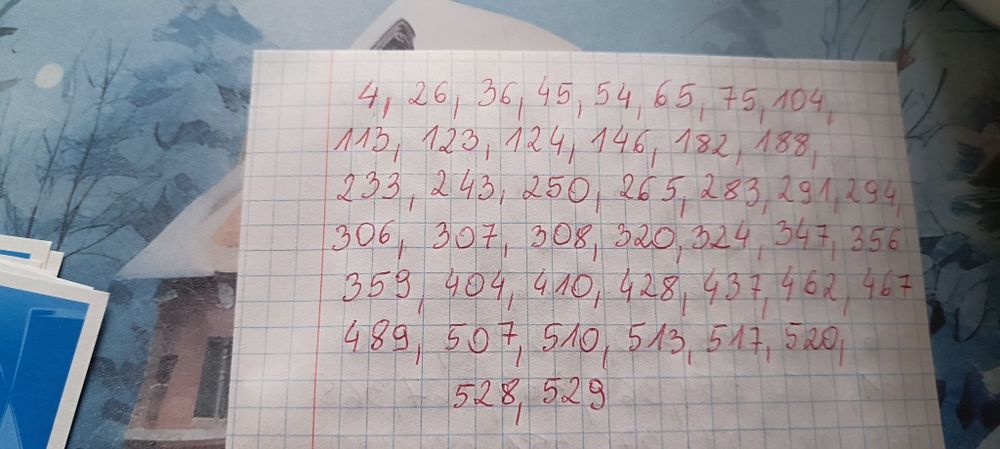 4, 26, 36, 45, 54, 65, 75, 104,
113, 123, 124, 146, 182, 188,
233, 243, 250, 265, 283, 291, 294,
306, 307, 308, 320, 324, 347, 356
359, 404, 410, 428, 437, 462, 467
489, 507, 510, 513, 517, 520,
528, 529